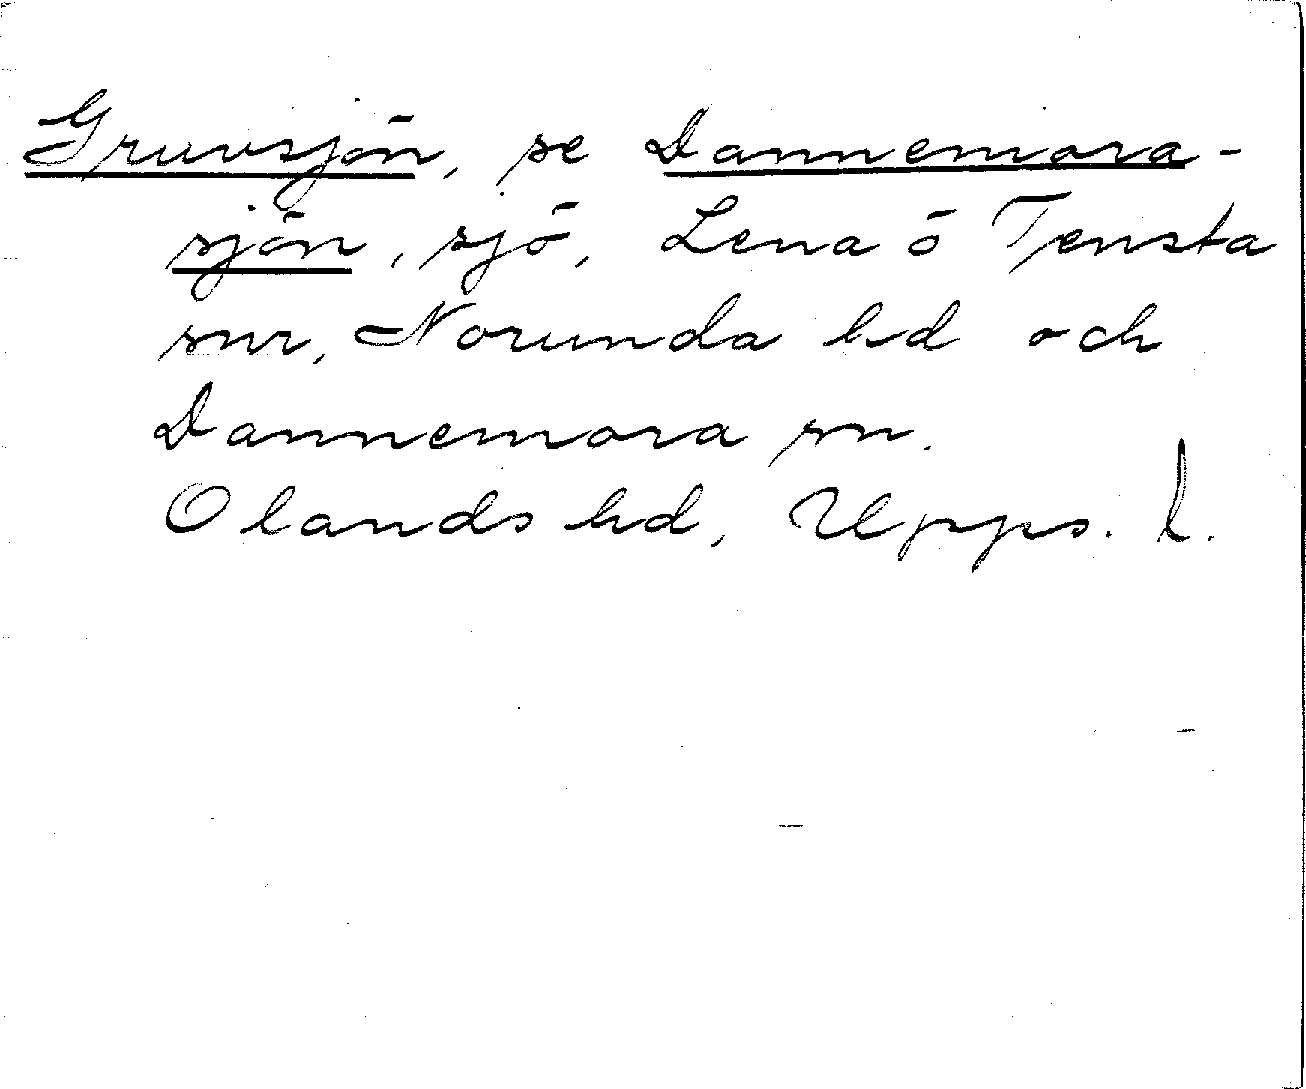 Gruvsjön, se Dannemora-
sjön, sjö, Lena o Tensta
snr, Norunda hd och
Dannemora sn.
Olands hd, Upps. l.